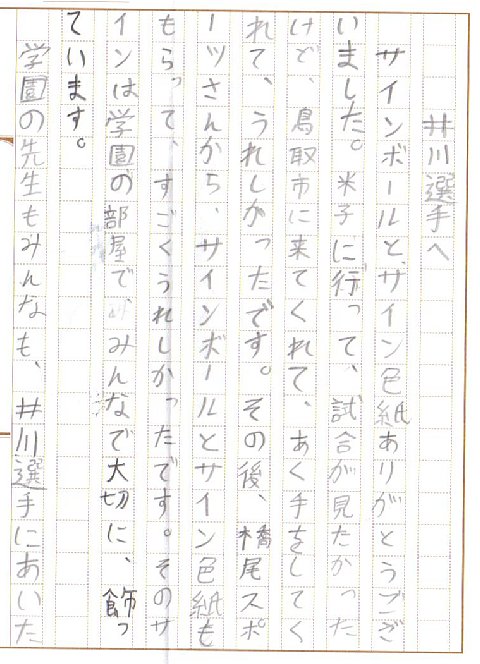 井川選手へ
サインボールと、サイン色紙ありがとうござ
いました。米子に行って、試合が見たかった
けど、鳥取市に来てくれて、あく手をしてく
れて、うれしがったです。その後、橋尾スポ
ーツさんから、サインボールとサイン色紙も
もらって、すごくうれしかったです。そのサ
インは学園の部屋で、みんなで大切に、飾っ
ています。
学園の先生もみんなも、井川選手にあいた